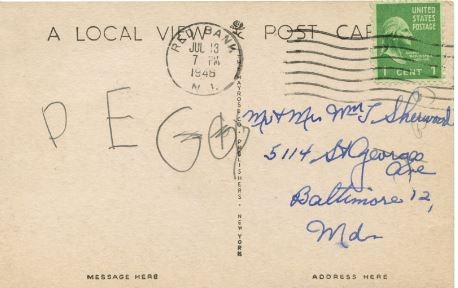 A LOCAL VIEW POST CARD
UNITED
STATES
POSTAGE
1 CENT 1
RED BANK
JUL 13
7 PM
1948
N.J.
PEGGY
Mr + Mrs Wm J Sherwood
5114 St Georges
Ave
Baltimore 12,
Md.
MAYROSE CO. PUBLISHERS. NEW YORK
MESSAGE HERE
ADDRESS HERE